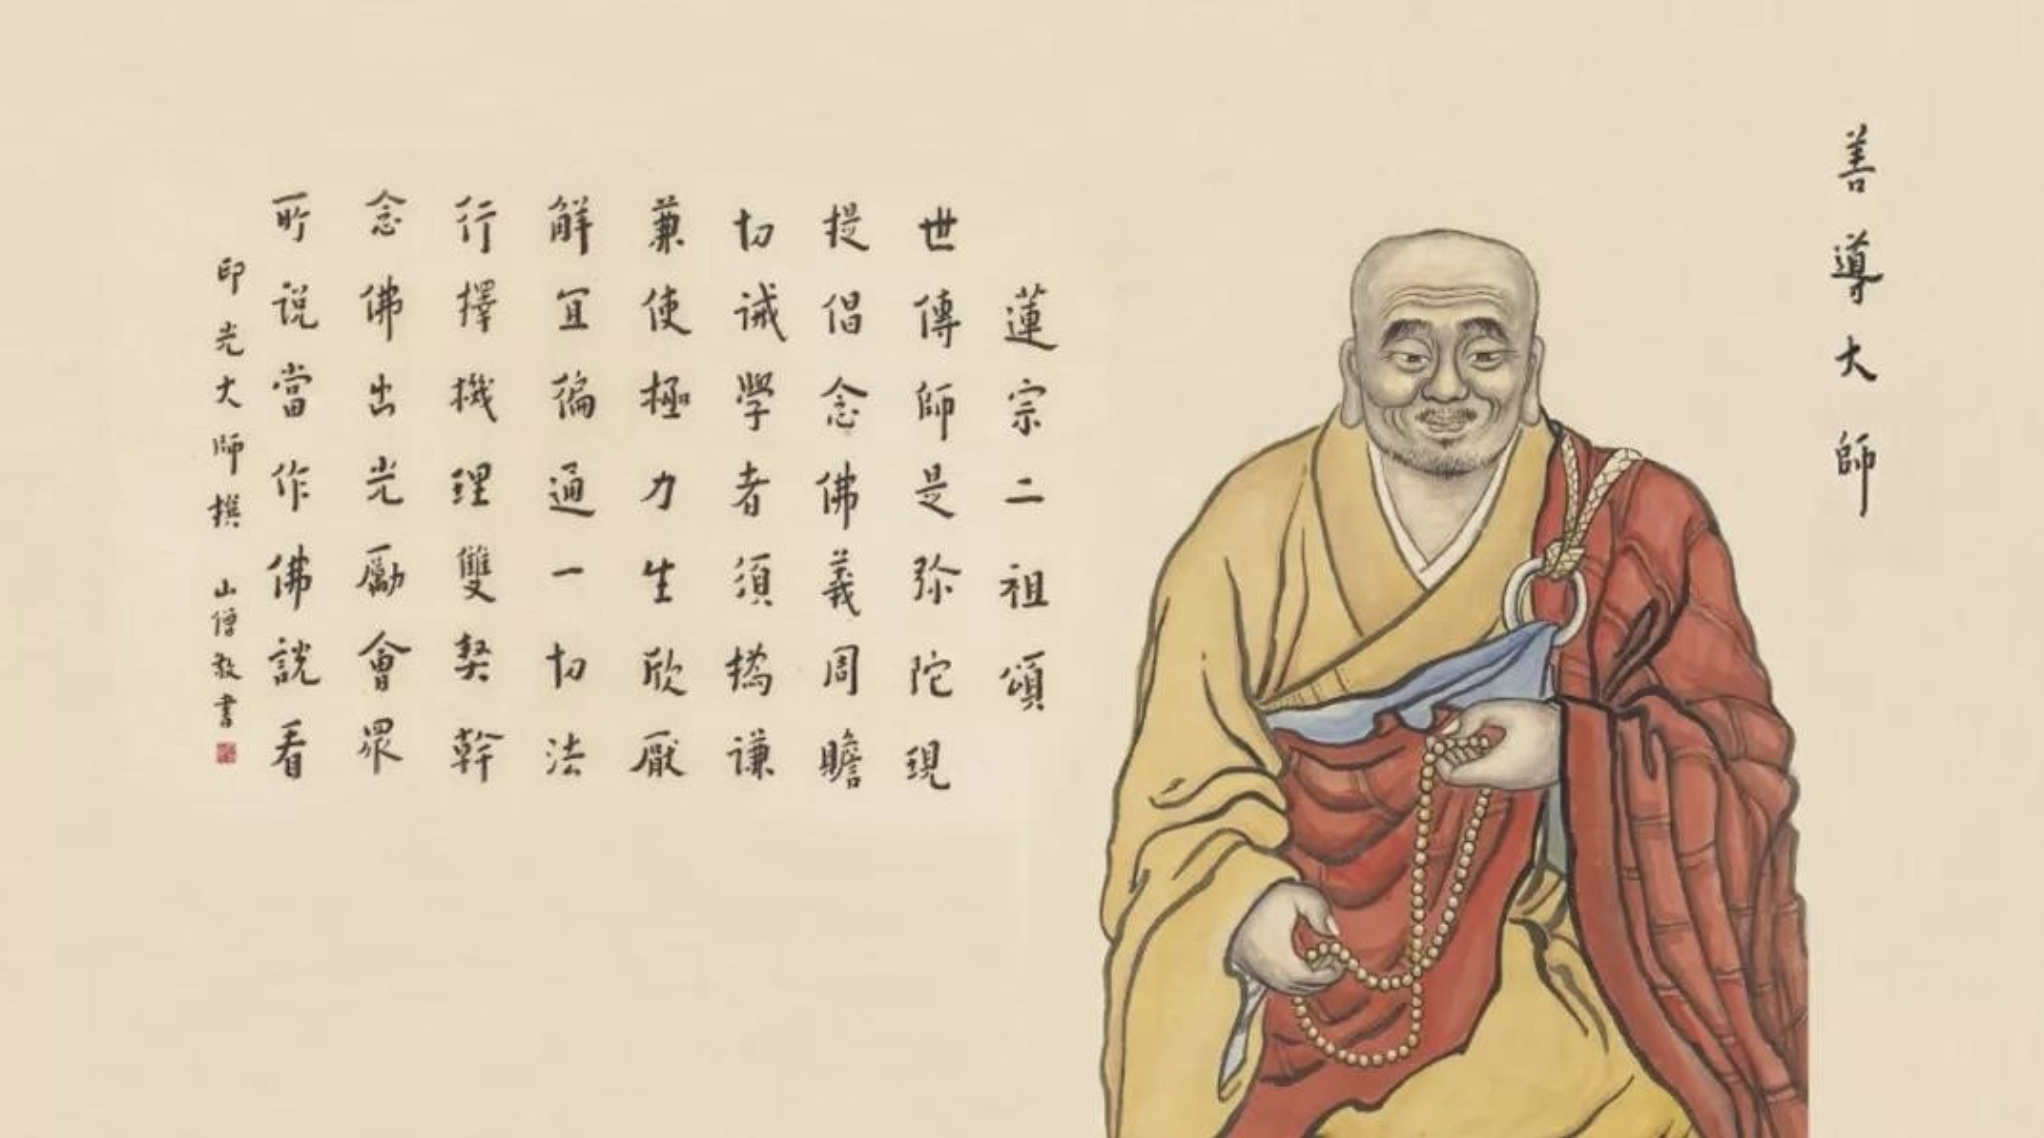 善導大師
蓮宗二祖頌
世傳師是弥陀現
提倡念佛義周贍
切誡學者須撝謙
兼使極力生欣厭
解宜徧通一切法
行擇機理雙契幹
念佛出光勵會眾
所說當作佛說看
印光大師撰 山僧敎書